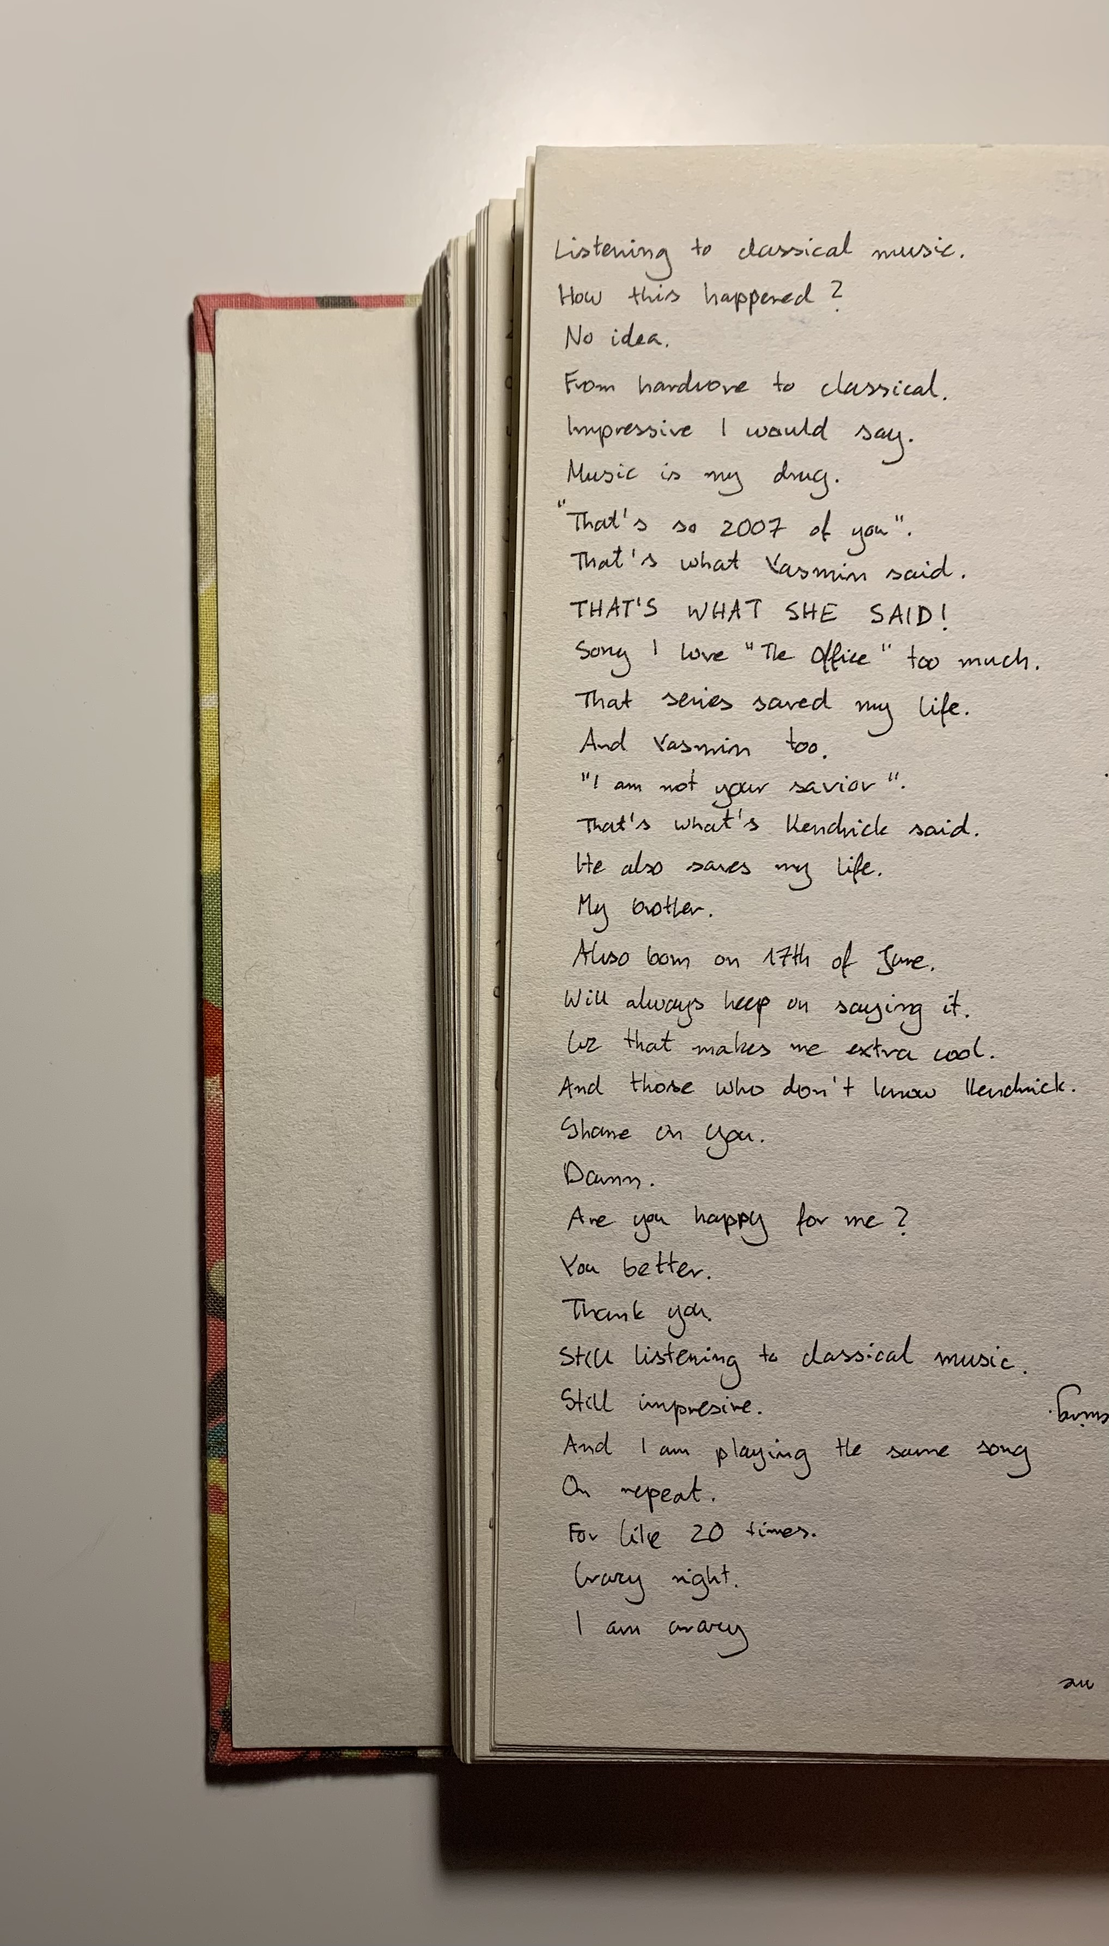 Listening to classical music.
How this happened?
No idea.
From hardcore to classical.
Impressive I would say.
Music is my drug.
"That's so 2007 of you".
That's what Yasmin said.
THAT'S WHAT SHE SAID!
Sorry I love "The Office" too much.
That series saved my life.
And Yasmin too.
"I am not your savior".
That's what's Kendrick said.
He also saves my life.
My brother.
Also born on 17th of June.
Will always keep on saying it.
Cuz that makes me extra cool.
And those who don't know Kendrick.
Shame on you.
Damn.
Are you happy for me?
You better.
Thank you.
Still listening to classical music.
Still impresive.
And I am playing the same song
On repeat.
For like 20 times.
Crazy right.
I am crazy